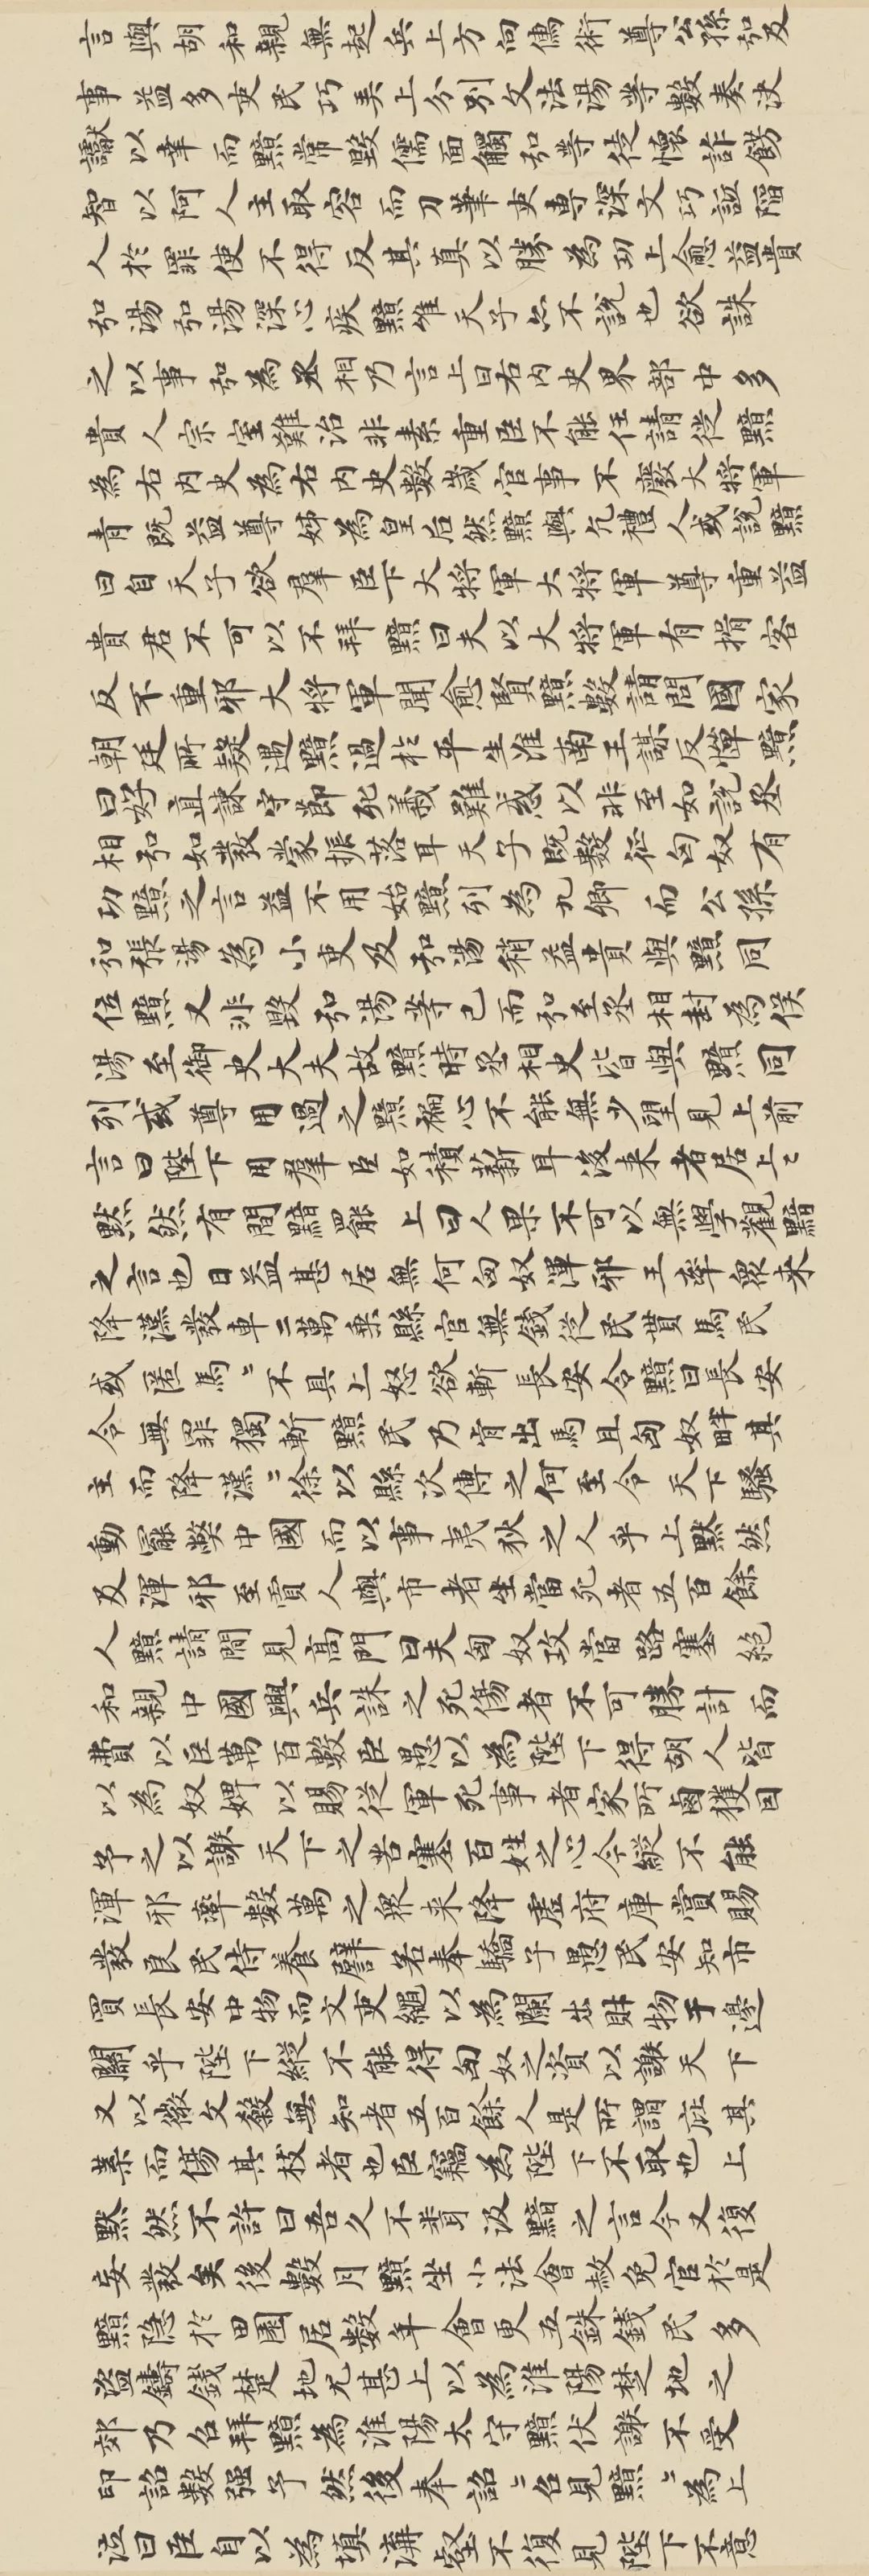 言與胡和親無起兵上方向儒術尊公孫弘及
事益多吏民巧弄上分別文法湯等數奏決
讞以幸而黯常毀儒面觸弘等徒懷詐飾
智以阿人主取容而刀筆吏專深文巧詆陷
人於罪使不得反其真以勝為功上愈益貴
弘湯弘湯深心疾黯唯天子亦不說也欲誅
之以事弘為丞相乃言上曰右內史界部中多
貴人宗室難治非素重臣不能任請徙黯
為右內史為右內史數歲官事不廢大將軍
青既益尊姊為皇后然黯與亢禮人或說黯
曰自天子欲羣臣下大將軍大將軍尊重益
貴君不可以不拜黯曰夫以大將軍有揖客
反不重邪大將軍聞愈賢黯數請問國家
朝廷所疑遇黯過於平生淮南王謀反憚黯
曰好直諫守節死義難惑以非至如說丞
相弘如發蒙振落耳天子既數征匈奴有
功黯之言益不用始黯列為九卿而公孫
弘張湯為小吏及弘湯稍益貴與黯同
位黯又非毀弘湯等已而弘至丞相封為侯
湯至御史大夫故黯時丞相史皆與黯同
列或尊用過之黯褊心不能無少望見上前
言曰陛下用羣臣如積薪耳後来者居上〻
默然有間黯罷上曰人果不可以無學觀黯
之言也日益甚居無何匈奴渾邪王率衆来
降漢發車二萬乘縣官無錢從民貰馬民
或匿馬〻不具上怒欲斬長安令黯曰長安
令無罪獨斬黯民乃肯出馬且匈奴畔其
主而降漢〻徐以縣次傳之何至令天下騷
動罷弊中國而以事夷狄之人乎上默然
及渾邪至賈人與市者坐當死者五百餘
人黯請間見高門曰夫匈奴攻當路塞絕
和親中國興兵誅之死傷者不可勝計而
費以巨萬百數臣愚以為陛下得胡人皆
以為奴婢以賜從軍死事者家所鹵獲因
予之以謝天下之苦塞百姓之心今縱不能
渾邪率數萬之衆来降虛府庫賞賜
發良民侍養譬若奉驕子愚民安知市
買長安中物而文吏繩以為闌出財物于邊
關乎陛下縱不能得匈奴之資以謝天下
又以微文殺無知者五百餘人是所謂庇其
葉而傷其枝者也臣竊為陛下不取也上
默然不許曰吾久不聞汲黯之言今又復
妄發矣後數月黯坐小法會赦免官於是
黯隐於田園居數年會更五銖錢民多
盜鑄錢楚地尤甚上以為淮陽楚地之
郊乃召拜黯為淮陽太守黯伏謝不受
印詔數强予然後奉詔〻召見黯〻為上
泣曰臣自以為填溝壑不復見陛下不意